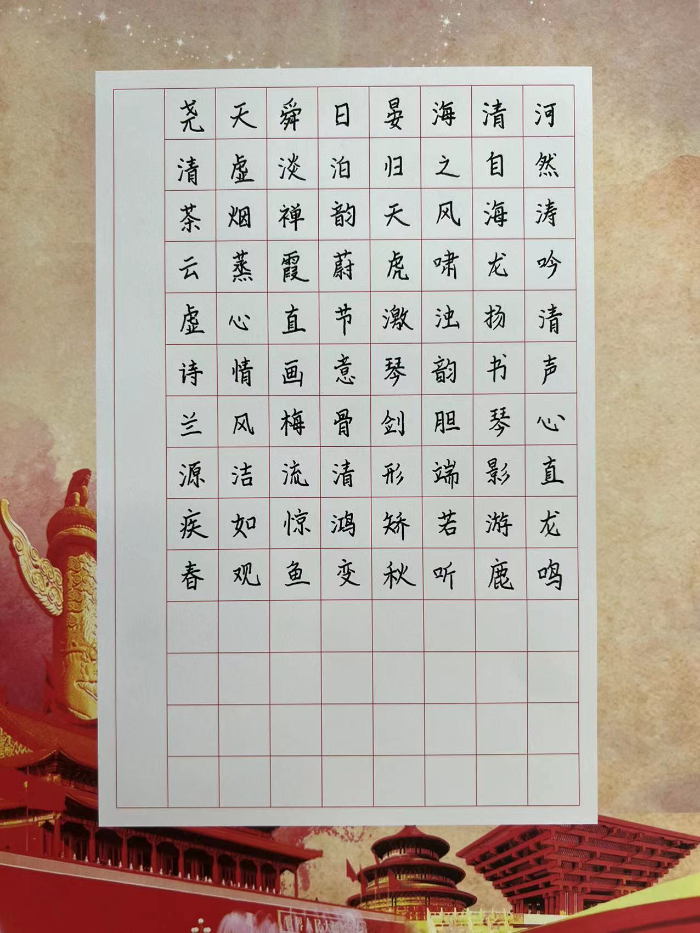 尧天舜日晏海清河
清虚淡泊归之自然
茶烟禅韵天风海涛
云蒸霞蔚虎啸龙吟
虚心直节激浊扬清
诗情画意琴韵书声
兰风梅骨剑胆琴心
源洁流清形端影直
疾如惊鸿矫若游龙
春观鱼变秋听鹿鸣